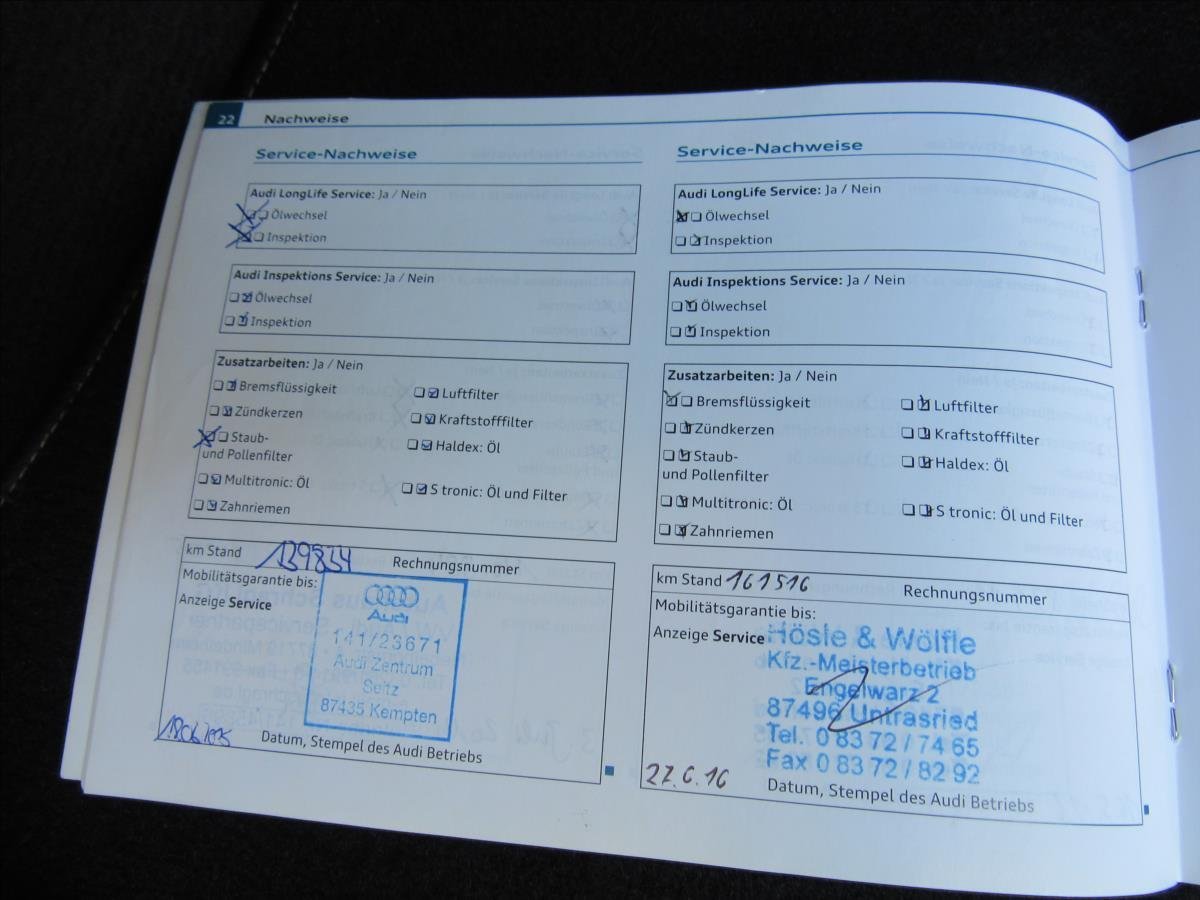 22 Nachweise
Service-Nachweise
Audi LongLife Service: Ja / Nein
Ölwechsel
Inspektion
Audi Inspektions Service: Ja / Nein
Ölwechsel
Inspektion
Zusatzarbeiten: Ja / Nein
Bremsflüssigkeit
Zündkerzen
Staub-
und Pollenfilter
Multitronic: Öl
Zahnriemen
Luftfilter
Kraftstofffilter
Haldex: Öl
S tronic: Öl und Filter
km Stand 139834
Rechnungsnummer
Mobilitätsgarantie bis:
Anzeige Service
Audi
141/23671
Audi Zentrum
Seitz
87435 Kempten
Datum, Stempel des Audi Betriebs
Service-Nachweise
Audi LongLife Service: Ja / Nein
Ölwechsel
Inspektion
Audi Inspektions Service: Ja / Nein
Ölwechsel
Inspektion
Zusatzarbeiten: Ja / Nein
Bremsflüssigkeit
Zündkerzen
Staub-
und Pollenfilter
Multitronic: Öl
Zahnriemen
Luftfilter
Kraftstofffilter
Haldex: Öl
S tronic: Öl und Filter
km Stand 161516
Rechnungsnummer
Mobilitätsgarantie bis:
Anzeige Service
Hösle & Wölfle
Kfz.-Meisterbetrieb
Engelwarz 2
87496 Untrasried
Tel. 0 83 72 / 74 65
Fax 0 83 72 / 82 92
27.6.16
Datum, Stempel des Audi Betriebs